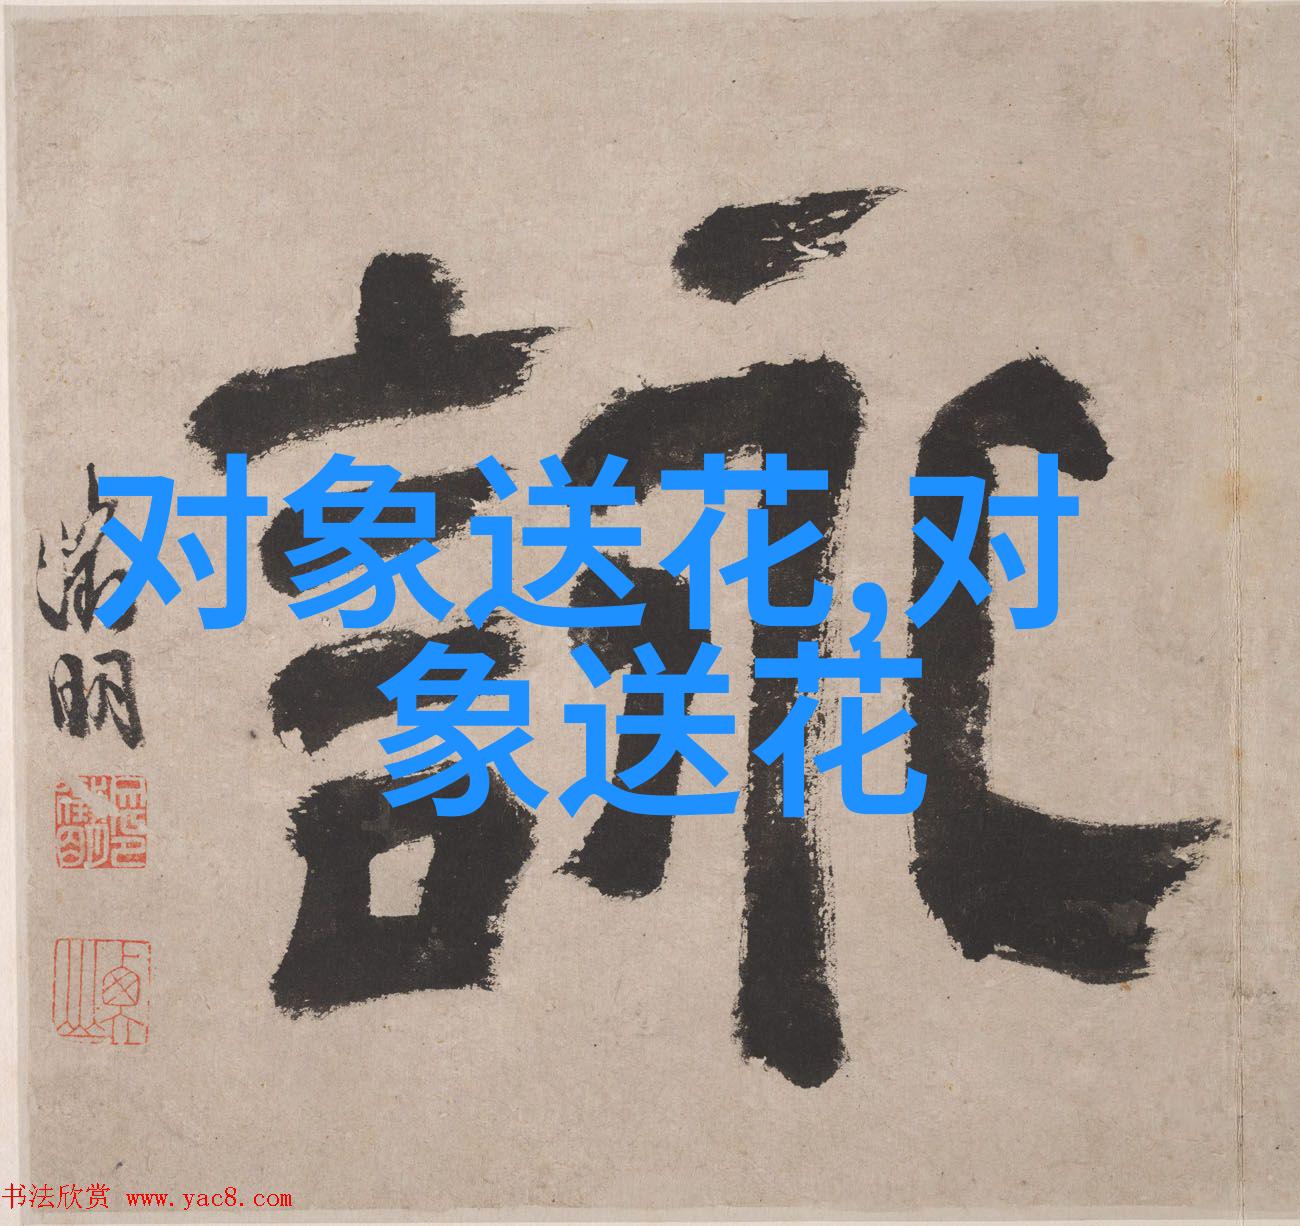 詠
对象送花,对
象送花
徵明
书法欣赏 www.yac8.com